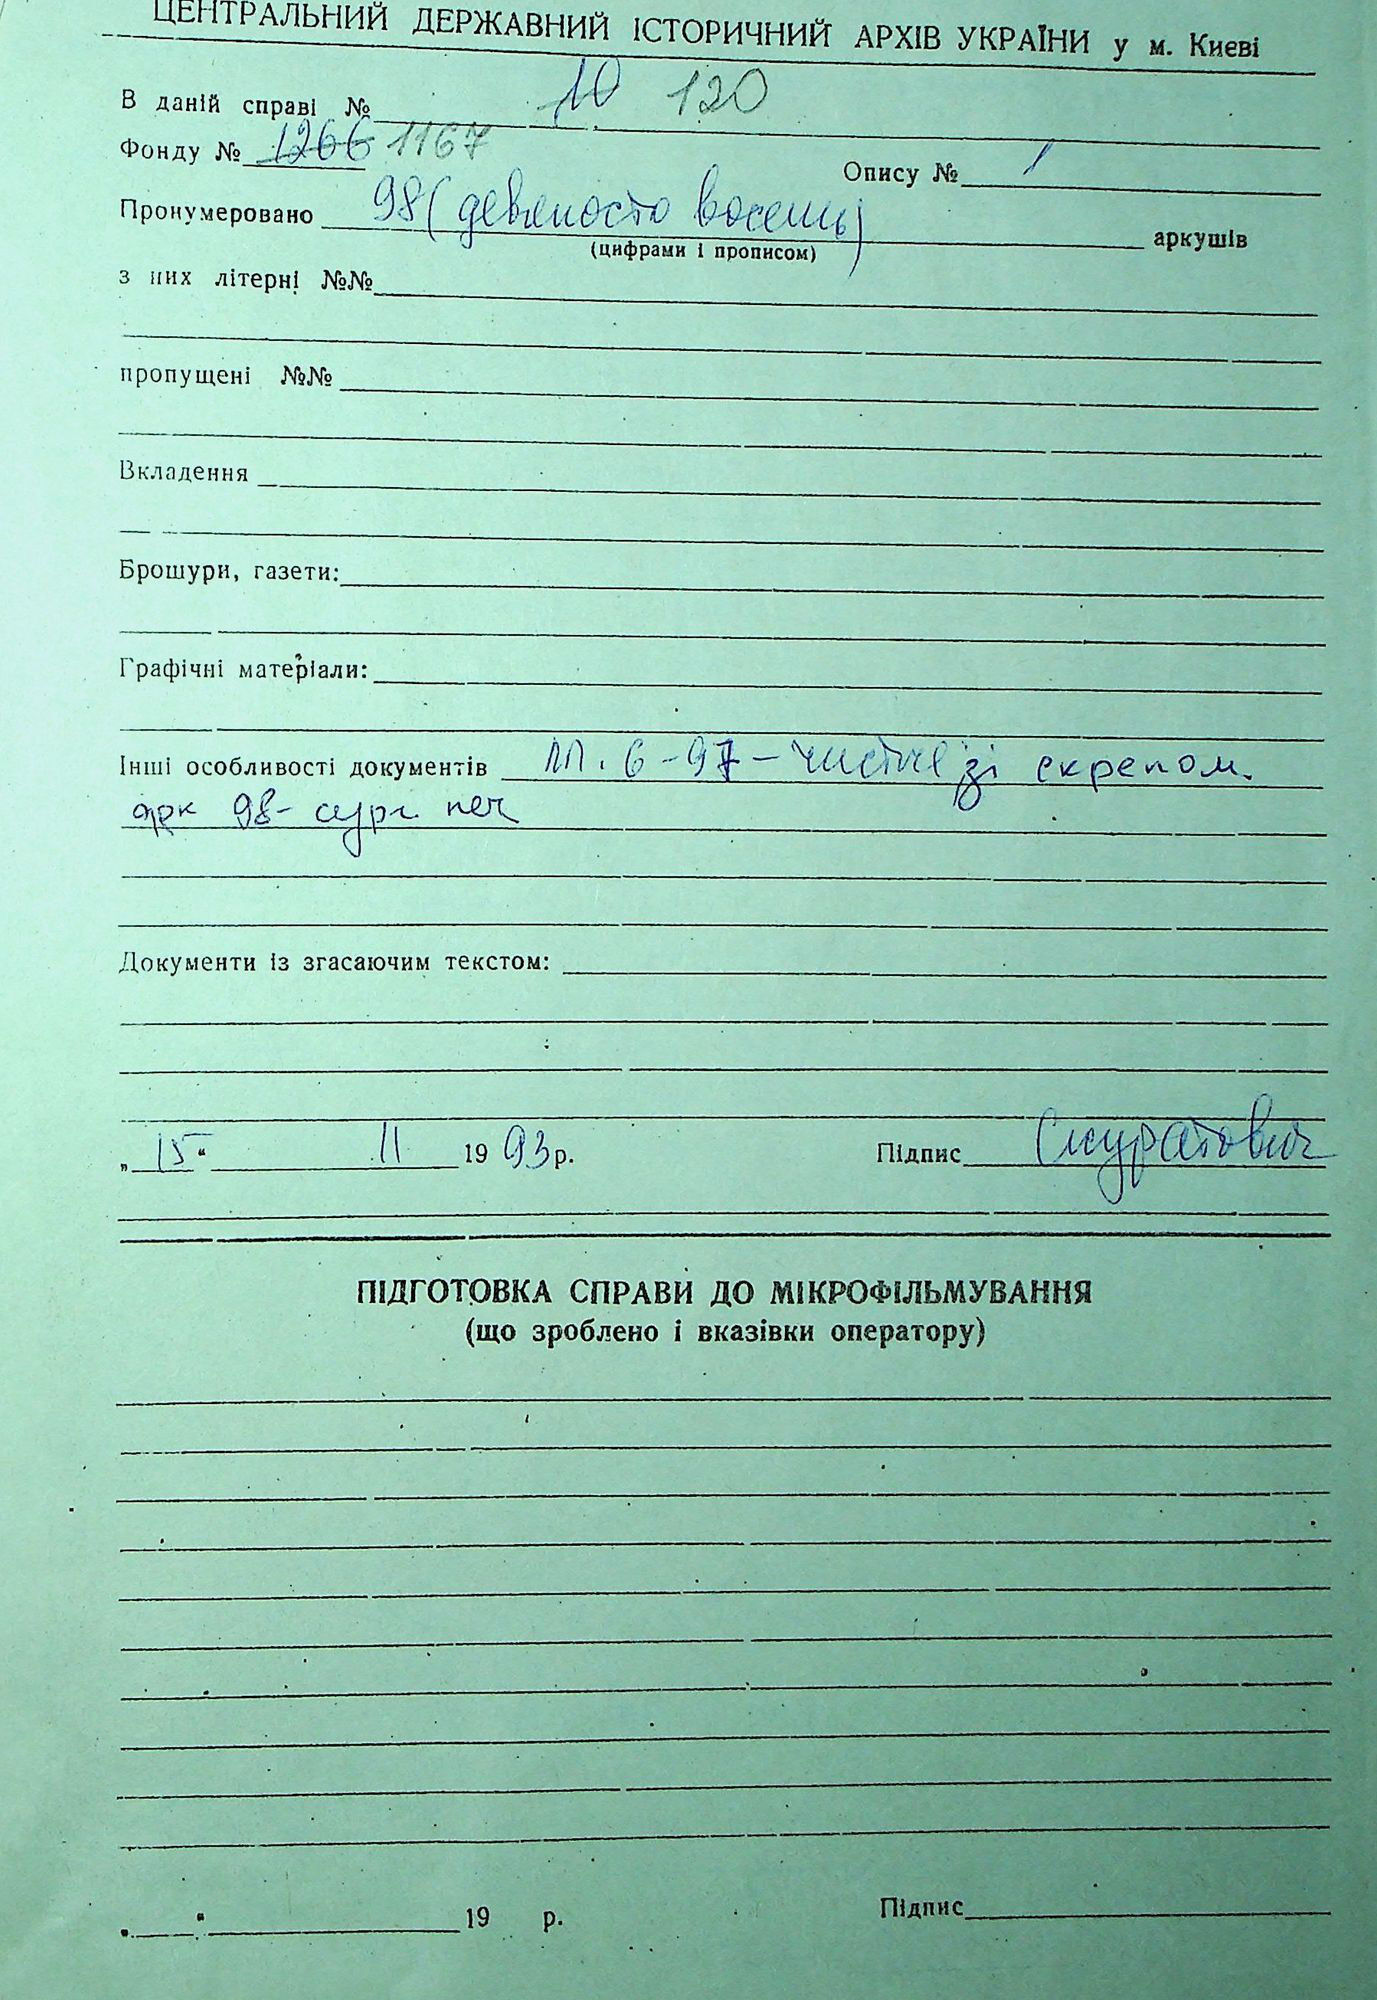 ЦЕНТРАЛЬНИЙ ДЕРЖАВНИЙ ІСТОРИЧНИЙ АРХІВ УКРАЇНИ у м. Києві
В даній справі № 10 120
Фонду № 1266 1167 Опису № 1
Пронумеровано 98 (девяносто восемь) аркушів
(цифрами і прописом)
з них літерні №№
пропущені №№
Вкладення
Брошури, газети:
Графічні матеріали:
Інші особливості документів 6-97 - чистые зі скрепом.
арк 98- сург. печ
Документи із згасаючим текстом:
„15“ 11 1993 р. Підпис Скуратович
ПІДГОТОВКА СПРАВИ ДО МІКРОФІЛЬМУВАННЯ
(що зроблено і вказівки оператору)
„ “ 19 р. Підпис